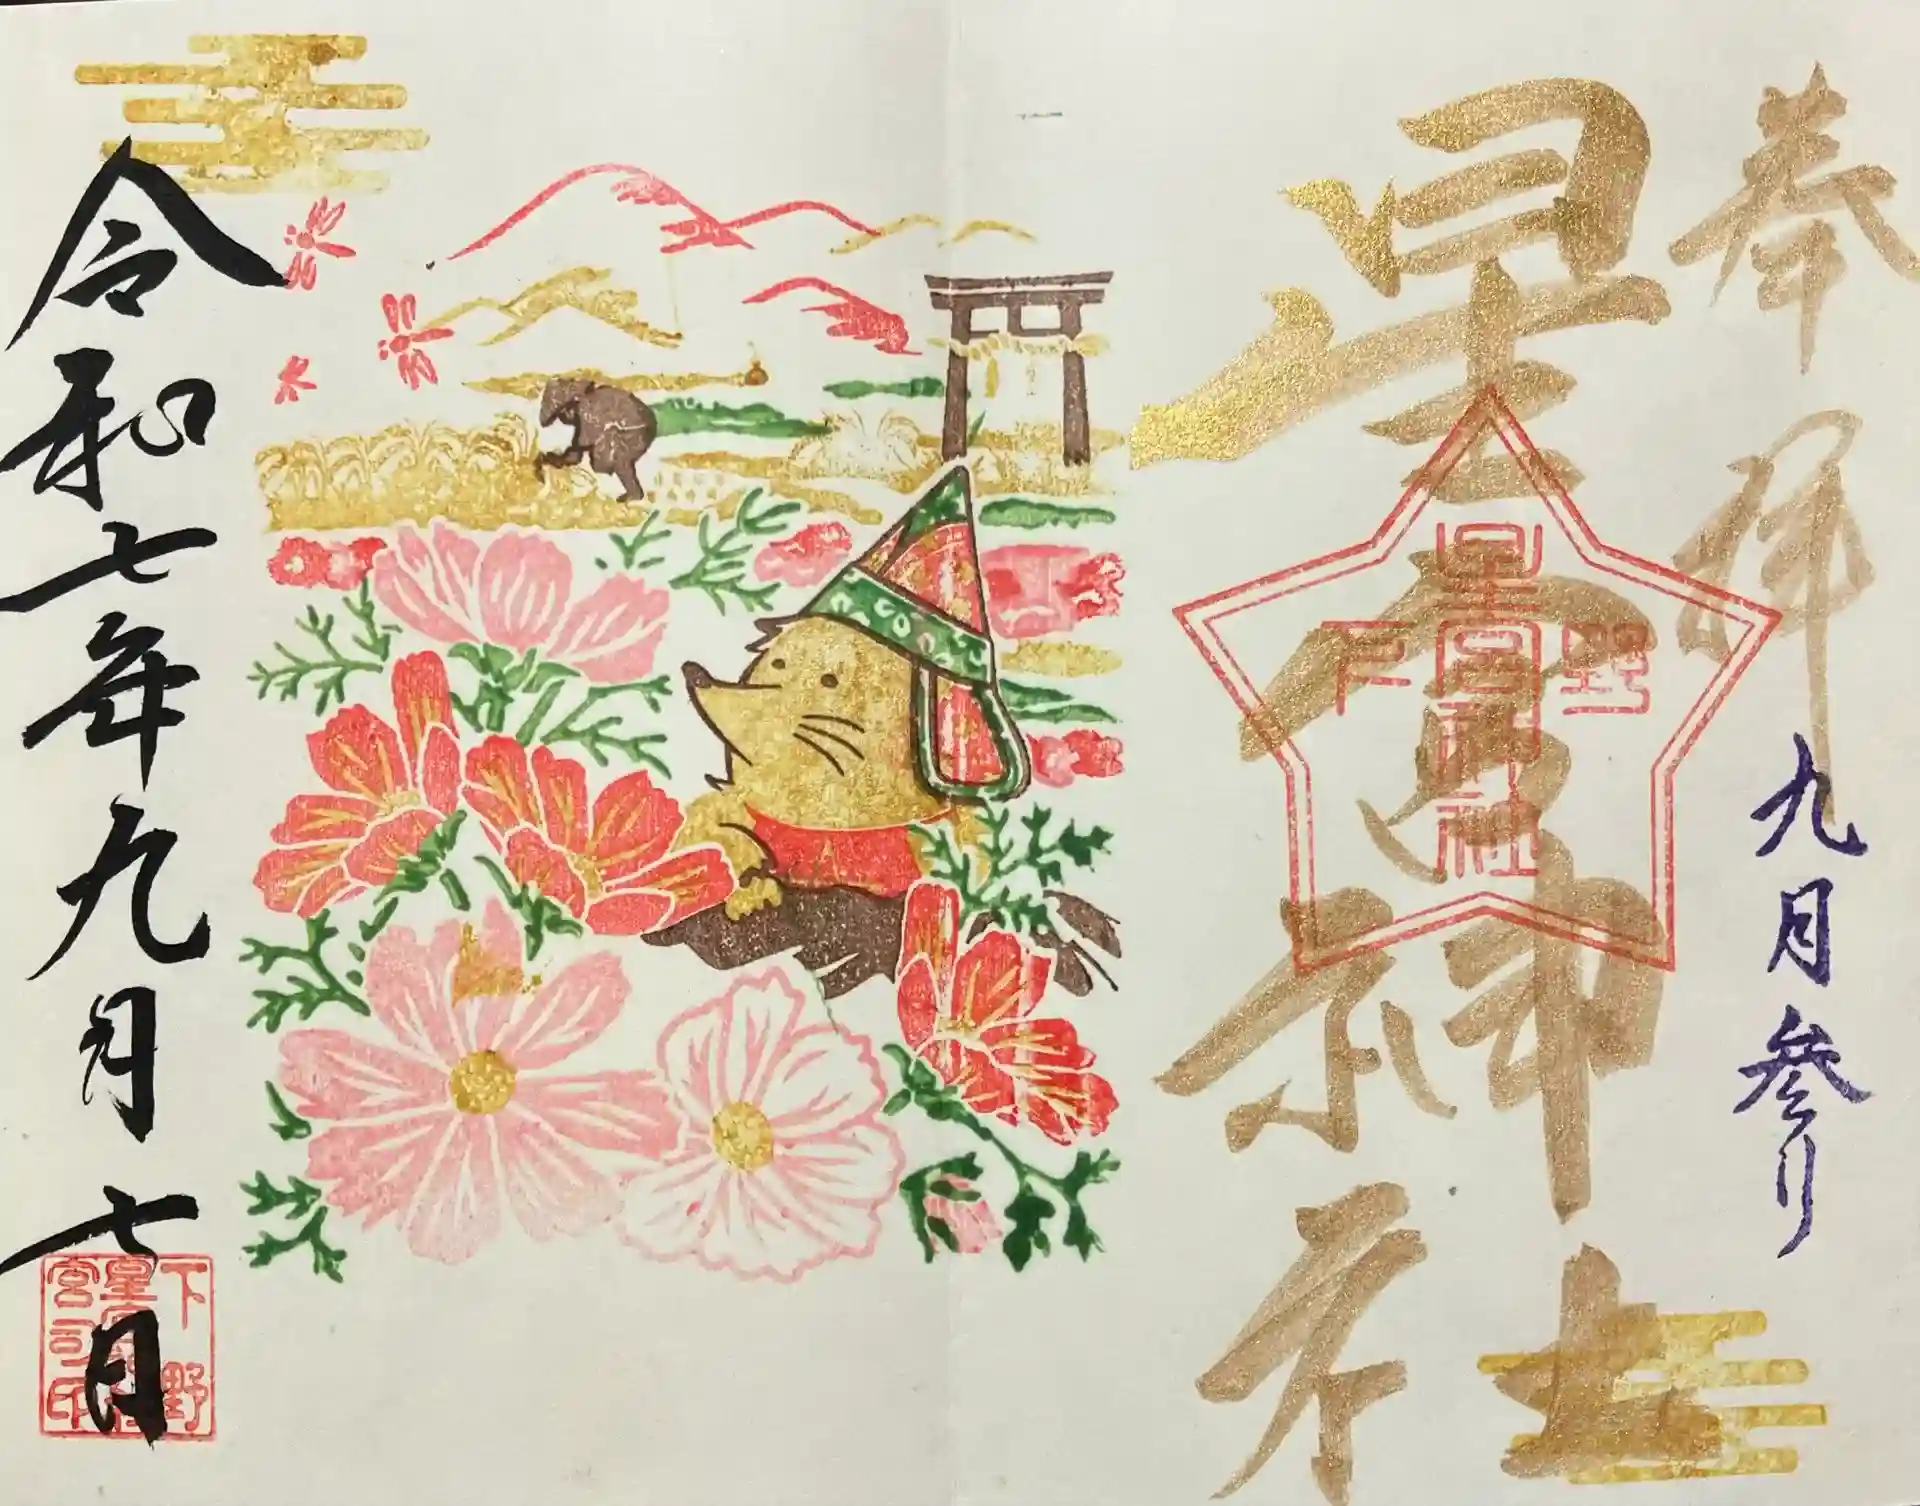 奉拝
九月参り
星宮神社
下野
星宮神社
令和七年九月七日
下野
星宮神社
宮司印